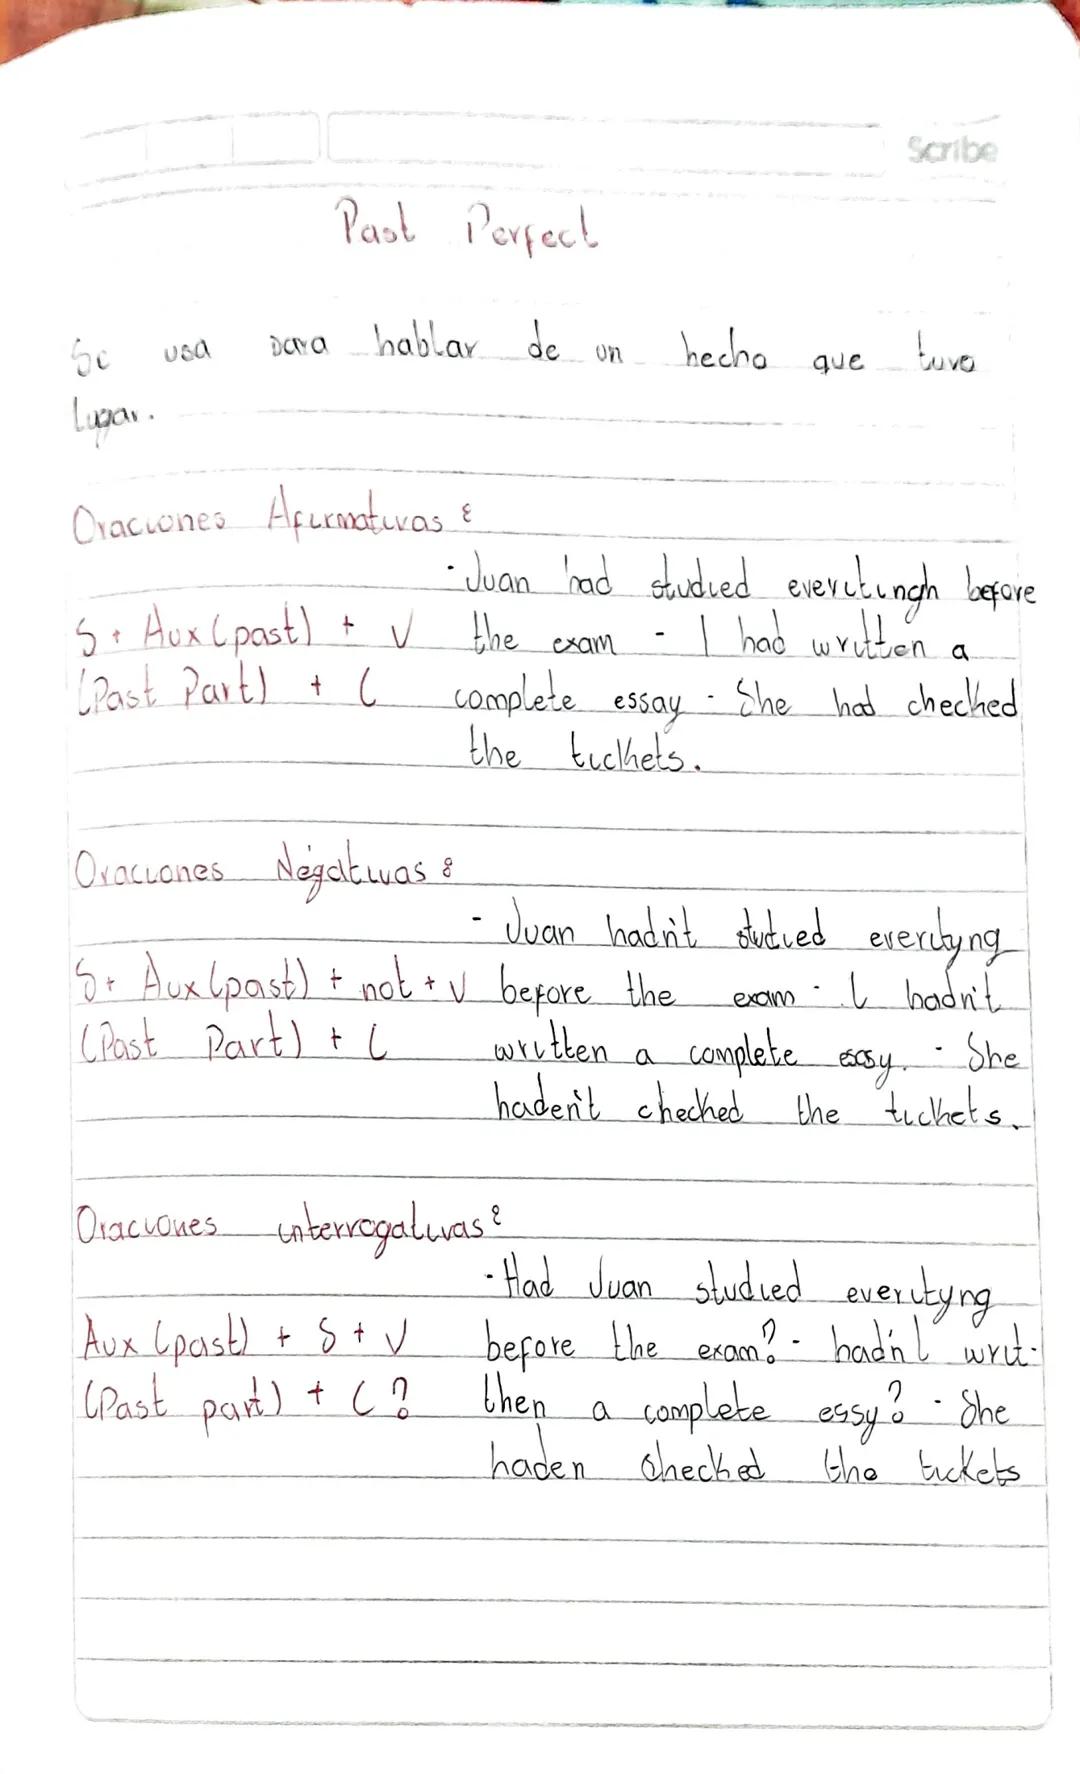 Scribe
Past Perfect
Se usa para hablar de un hecho que tuvo
lugar.
Oraciones Afirmativas :
· Juan had studied evercitingh before
S + Aux (past) + V the exam - I had written a
(Past Part) + C complete essay · She had checked
the tickets.
Oraciones Négativas :
- Juan hadn't studied evercityng
S + Aux (past) + not + V before the exam · I hadn't
(Past Part) + C written a complete essy. · She
haden't checked the tickets.
Oraciones interrogativas :
· Had Juan studied evercityng
Aux (past) + S + V before the exam? · hadn I writ-
(Past part) + C ? then a complete essy? · She
haden checked the tickets